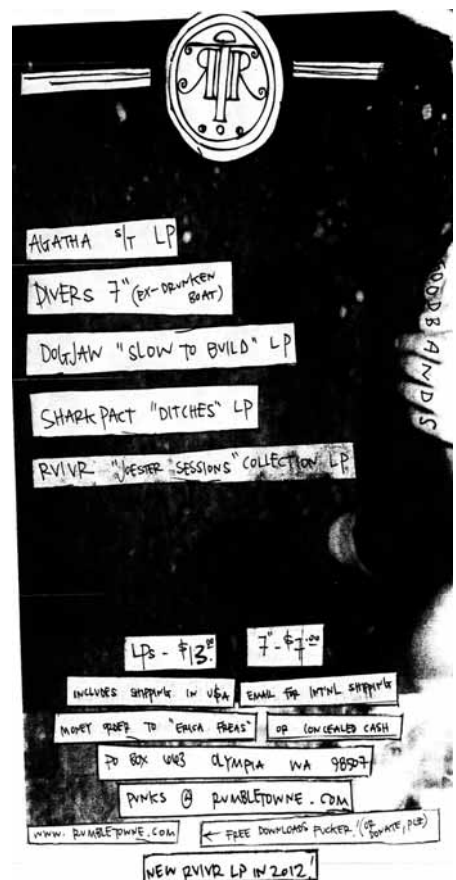 AGATHA S/T LP
DIVERS 7" (EX-DRUNKEN
BOAT)
DOGJAW "SLOW TO BUILD" LP
SHARKPACT "DITCHES" LP
RVIVR "JOESTER SESSIONS" COLLECTION LP
GOODBANDS
LPs - $13.00 7" - $7.00
INCLUDES SHIPPING IN U$A EMAIL FOR INT'NL SHIPPING
MONEY ORDER TO "ERICA FREAS" OR CONCEALED CASH
PO BOX 443 OLYMPIA WA 98507
PUNKS @ RUMBLETOWNE.COM
WWW.RUMBLETOWNE.COM ← FREE DOWNLOADS FUCKER! (OR
DONATE, PLZ)
NEW RVIVR LP IN 2012!